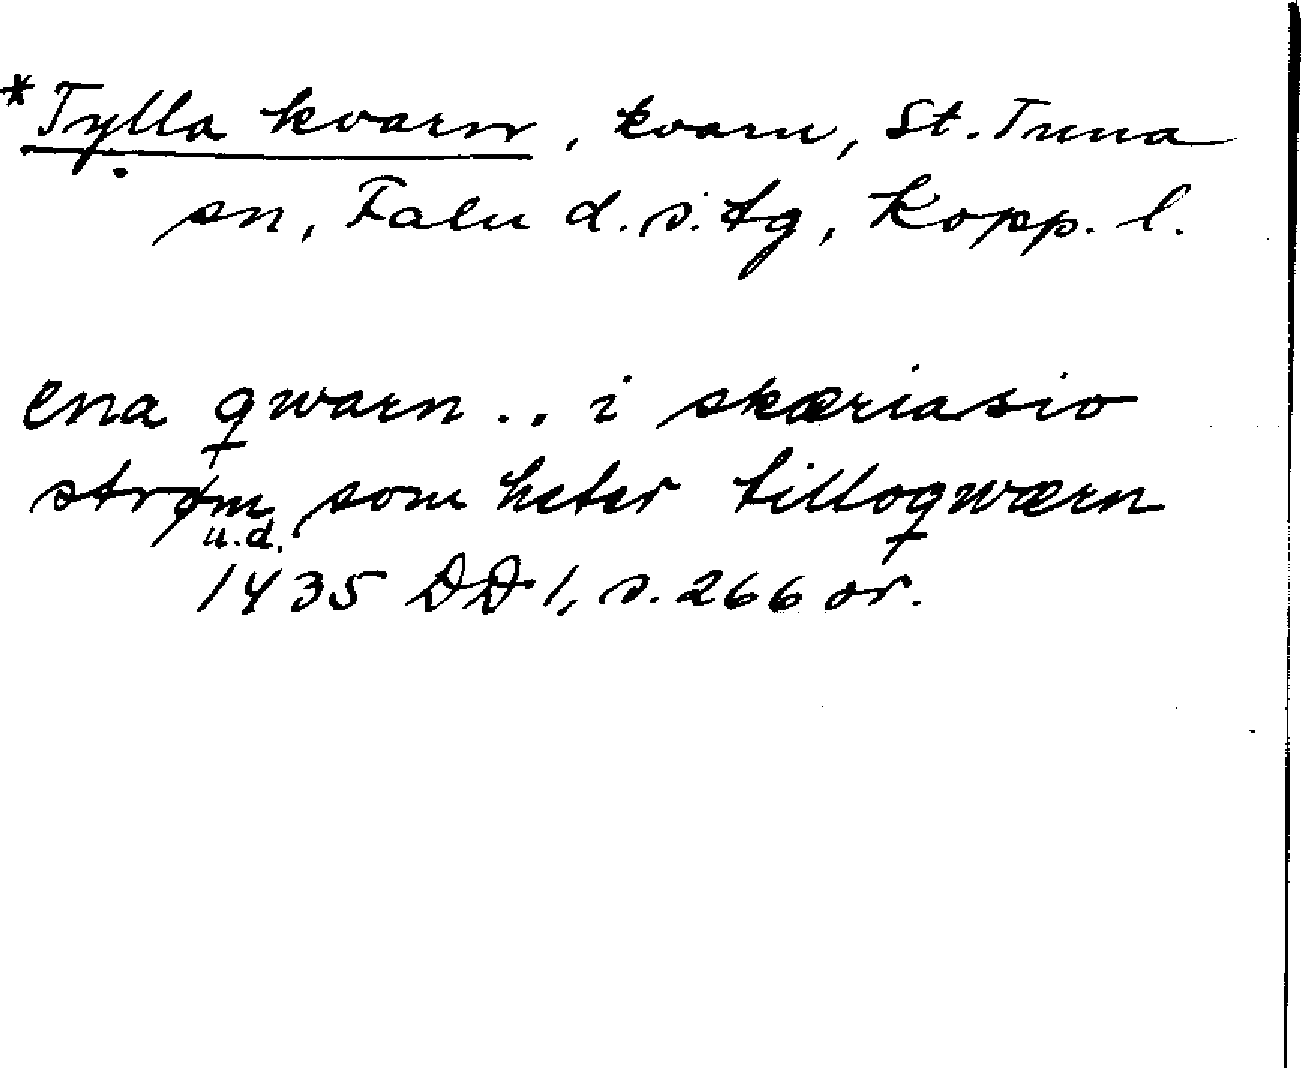 *Tylla kvarn, kvarn, St. Tuna
sn, Falu d.s. tg, Kopp. l.
ena qwarn .. i skæriasio
strøm som heter tilloqwærn
u.d.
1435 DD 1, s. 266 or.